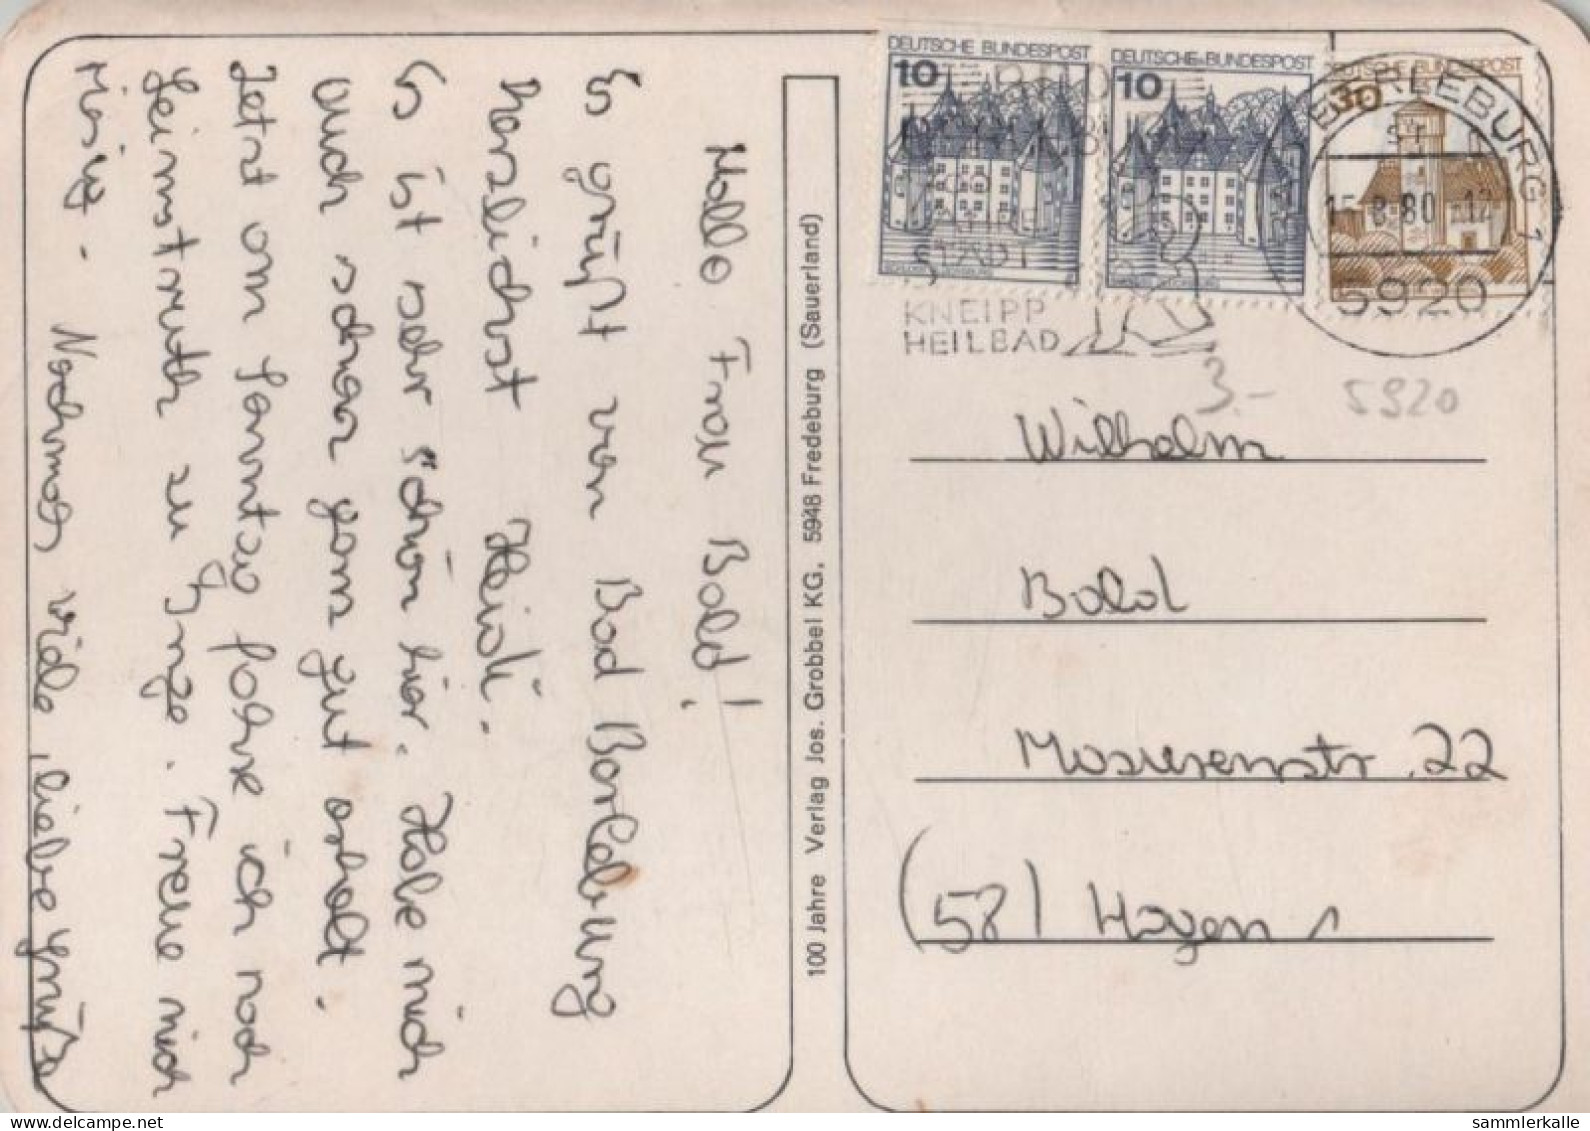 Hallo Frau Bald!
Es grüßt von Bad Berleburg
herzlichst Heidi.
Es ist sehr schön hier. Habe mich
auch schon ganz gut erholt.
Jetzt am Sonntag fahre ich noch
zu Inge. Freue mich
riesig. Nochmals viele, liebe Grüße
100 Jahre Verlag Jos. Grobbel KG, 5948 Fredeburg (Sauerland)
DEUTSCHE BUNDESPOST
10
DEUTSCHE BUNDESPOST
10
DEUTSCHE BUNDESPOST
30
BERLEBURG 1
15.8.80-12
5920
BAD
STADT
KNEIPP
HEILBAD
3.-
5920
Wilhelm
Bald
Masurenstr. 22
(58) Hagen 1
sammlerkalle